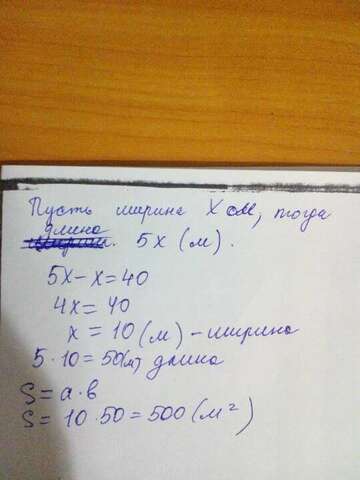 Пусть ширина X м, тогда
длина 5x (м).
5x-x=40
4x=40
x=10(м)-ширина
5·10=50(м) длина
S=a·в
S=10·50=500(м²)